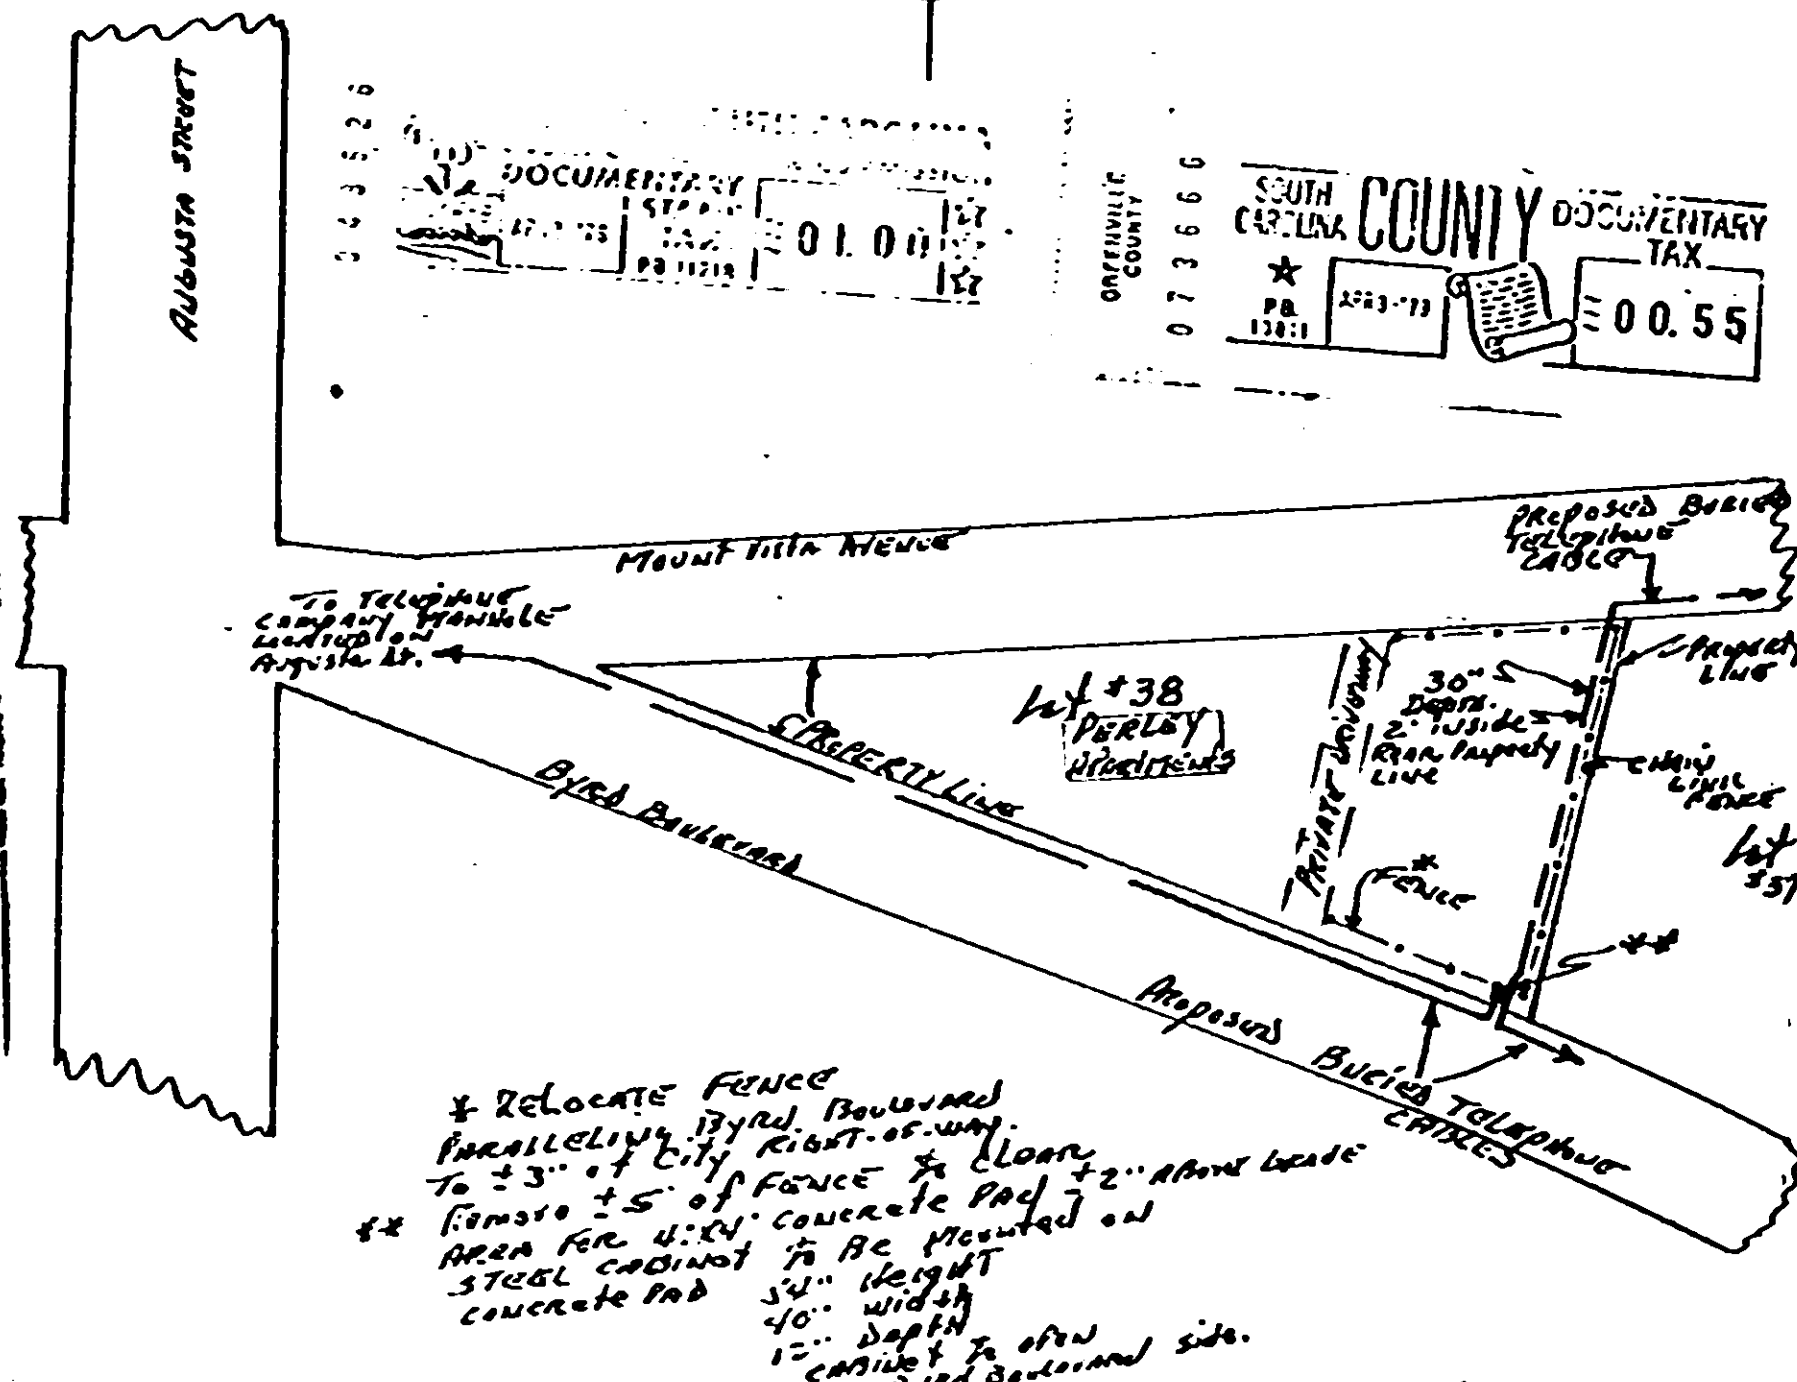 AUGUSTA STREET
DOCUMENTARY
STAMP
TAX
PB 11218
01.00
GREENVILLE
COUNTY
073666
SOUTH
CAROLINA
COUNTY
DOCUMENTARY
TAX
PB.
00.55
MOUNT VISTA AVENUE
PROPOSED BURIED
TELEPHONE
CABLE
TO TELEPHONE
COMPANY MANHOLE
LOCATED ON
Augusta St.
PROPERTY
LINE
Lot #38
PERLEY
APARTMENTS
PRIVATE DRIVEWAY
30"
DEPTH.
2' INSIDE
REAR PROPERTY
LINE
CHAIN
LINK
FENCE
Lot
#37
PROPERTY LINE
BYRD BOULEVARD
* FENCE
**
PROPOSED BURIED TELEPHONE
CABLES
* RELOCATE FENCE
PARALLELING BYRD BOULEVARD
TO ±3" of City RIGHT-OF-WAY.
** Remove ±5' of FENCE To CLEAR
AREA FOR 4'x4' CONCRETE PAD ±2" ABOVE GRADE
STEEL CABINET To BE MOUNTED ON
CONCRETE PAD
54" HEIGHT
40" WIDTH
DEPTH
CABINET To OPEN
BOULEVARD side.